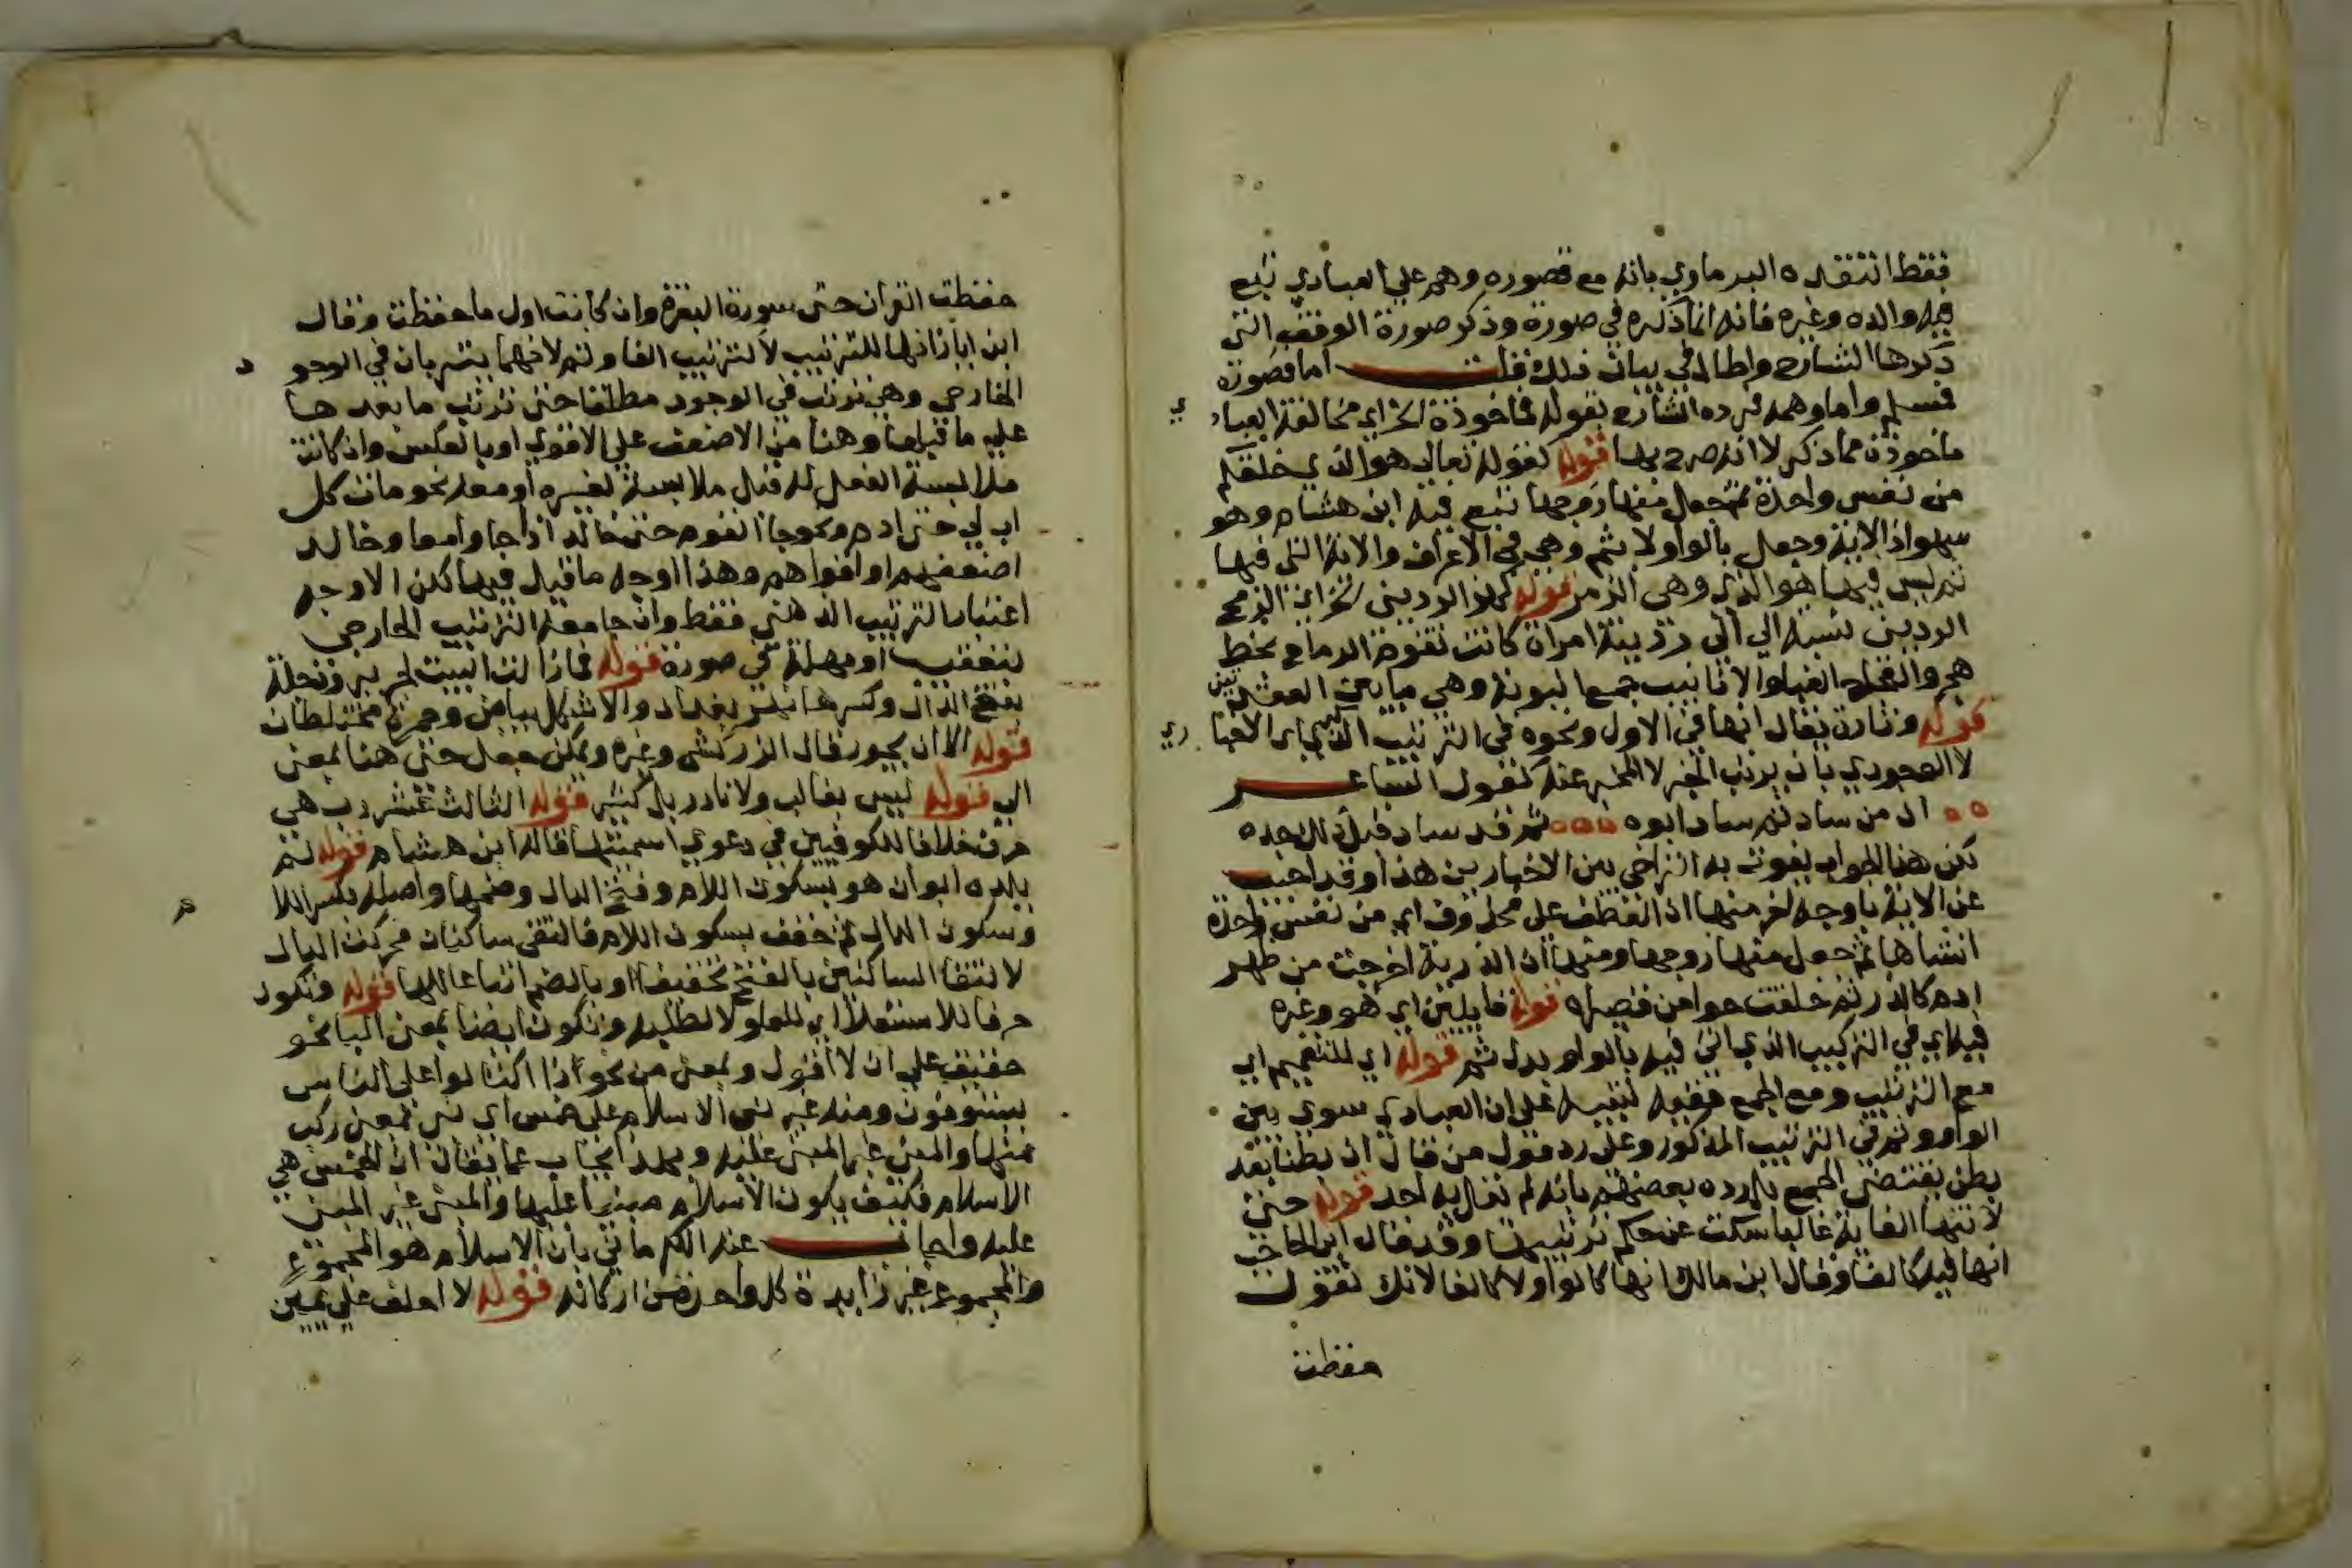 فقط انتقده البرماوي بانه مع قصوره وهم علي العبادي تبع
فيه والده وغيره فانه انما ذكره في صورة وذكر صورة الوقف التي
ذكرها الشارح واطال في بيان ذلك قلت اما قصوره
فمسلم واما وهمه فرده الشارح بقوله فماخوذة الخ اي مخالفة العبادي
ماخوذة مما ذكر لا انه صرح بها قوله كقوله تعالي هو الذي خلقكم
من نفس واحدة ثم جعل منها زوجها تبع فيه ابن هشام وهو
سهو اذ الاية وجعل بالواو لا بثم وهي في الاعراف والاية التي فيها
ثم ليس فيها هو الذي وهي الزمر قوله كهز الرديني الخ اي الرمح
الرديني نسبة الي ردينة امراة كانت تقوم الرماح بخط
هجر والعجاج الغبار والانابيب جمع انبوبة وهي ما بين العقدتين
قوله وتارة يقال انها في الاول ونحوه في الترتيب الذكري اي الاخباري
لا الوجودي بان يرتب الخبر لا المخبر عنه كقول الشاعر
ان من ساد ثم ساد ابوه ثم قد ساد قبل ذلك جده
لكن هذا الجواب يفوت به التراخي بين الاخبارين هذا وقد اجيب
عن الاية باوجه اخر منها ان العطف علي محذوف اي من نفس واحدة
انشاها ثم جعل منها زوجها ومنها ان الذرية اخرجت من ظهر
ادم كالذر ثم خلقت حوا من قصيراه قوله قايلين اي هو وغيره
فيه اي في التركيب الذي اتي فيه بالواو بدل ثم قوله اي للتعميم اي
مع الترتيب ومع الجمع ففيه تنبيه علي ان العبادي سوي بين
الواو وثم في الترتيب المذكور وعلي رد قول من قال ان بطنا بعد
بطن يقتضي الجمع بل رده بعضهم بانه لم يقل به احد قوله حتي
لانتها الغاية غالبا سكت عن حكم ترتيبها وقد قال ابن الحاجب
انها فيه كالفا وقال ابن مالك انها كالواو لا كالفا لانك تقول
حفظت
حفظت القران حتي سورة البقرة وان كانت اول ما حفظت وقال
ابن اياز انها للترتيب لا لترتيب الفا وثم لانهما يترتبان في الوجود
الخارجي وهي ترتب في الوجود مطلقا حتي ترتب ما بعدها
علي ما قبلها وهنا من الاضعف علي الاقوي او بالعكس وان كانت
ملابسة الفعل له قبل ملابسة لغيره او معه نحو مات كل
اب لي حتي ادم ونحو جا القوم حتي خالد اذا جاوا معا وخالد
اضعفهم او اقواهم وهذا اوجه ما قيل فيها لكن الاوجه
اعتبار الترتيب الذهني فقط وان جامعه الترتيب الخارجي
بتعقيب او مهلة في صورة قوله فما زالت البيت لجرير ودجلة
بفتح الدال وكسرها نهر بغداد والاشكل بياض وحمرة مختلطان
قوله الا ان يجود قال الزركشي وغيره ويمكن جعل حتي هنا بمعني
الي قوله ليس بغالب ولا نادر بل كثير قوله الثالث عشر رب هي
حرف خلافا للكوفيين في دعوي اسميتها قاله ابن هشام قوله لم
يلده ابوان هو بسكون اللام وفتح الدال وضمها واصله بكسر اللام
وسكون الدال ثم خفف بسكون اللام فالتقي ساكنان فحركت الدال
لالتقا الساكنين بالفتح تخفيفا او بالضم اتباعا للها قوله وتكون
حرفا للاستعلا اي للعلو لا لطلبه وتكون ايضا بمعني البا نحو
حقيق علي ان لا اقول وبمعني من نحو اذا اكتالوا علي الناس
يستوفون ومنه خبر بني الاسلام علي خمس اي بني بمعني ركب
منها والمبني غير المبني عليه وبهذا يجاب عما يقال ان الخمس هي
الاسلام فكيف يكون الاسلام مبنيا عليها والمبني غير المبني
عليه واجاب عنه الكرماني بان الاسلام هو المجموع
والمجموع غير زايد ة كل واحد من اركانه قوله لا احلف علي يمين